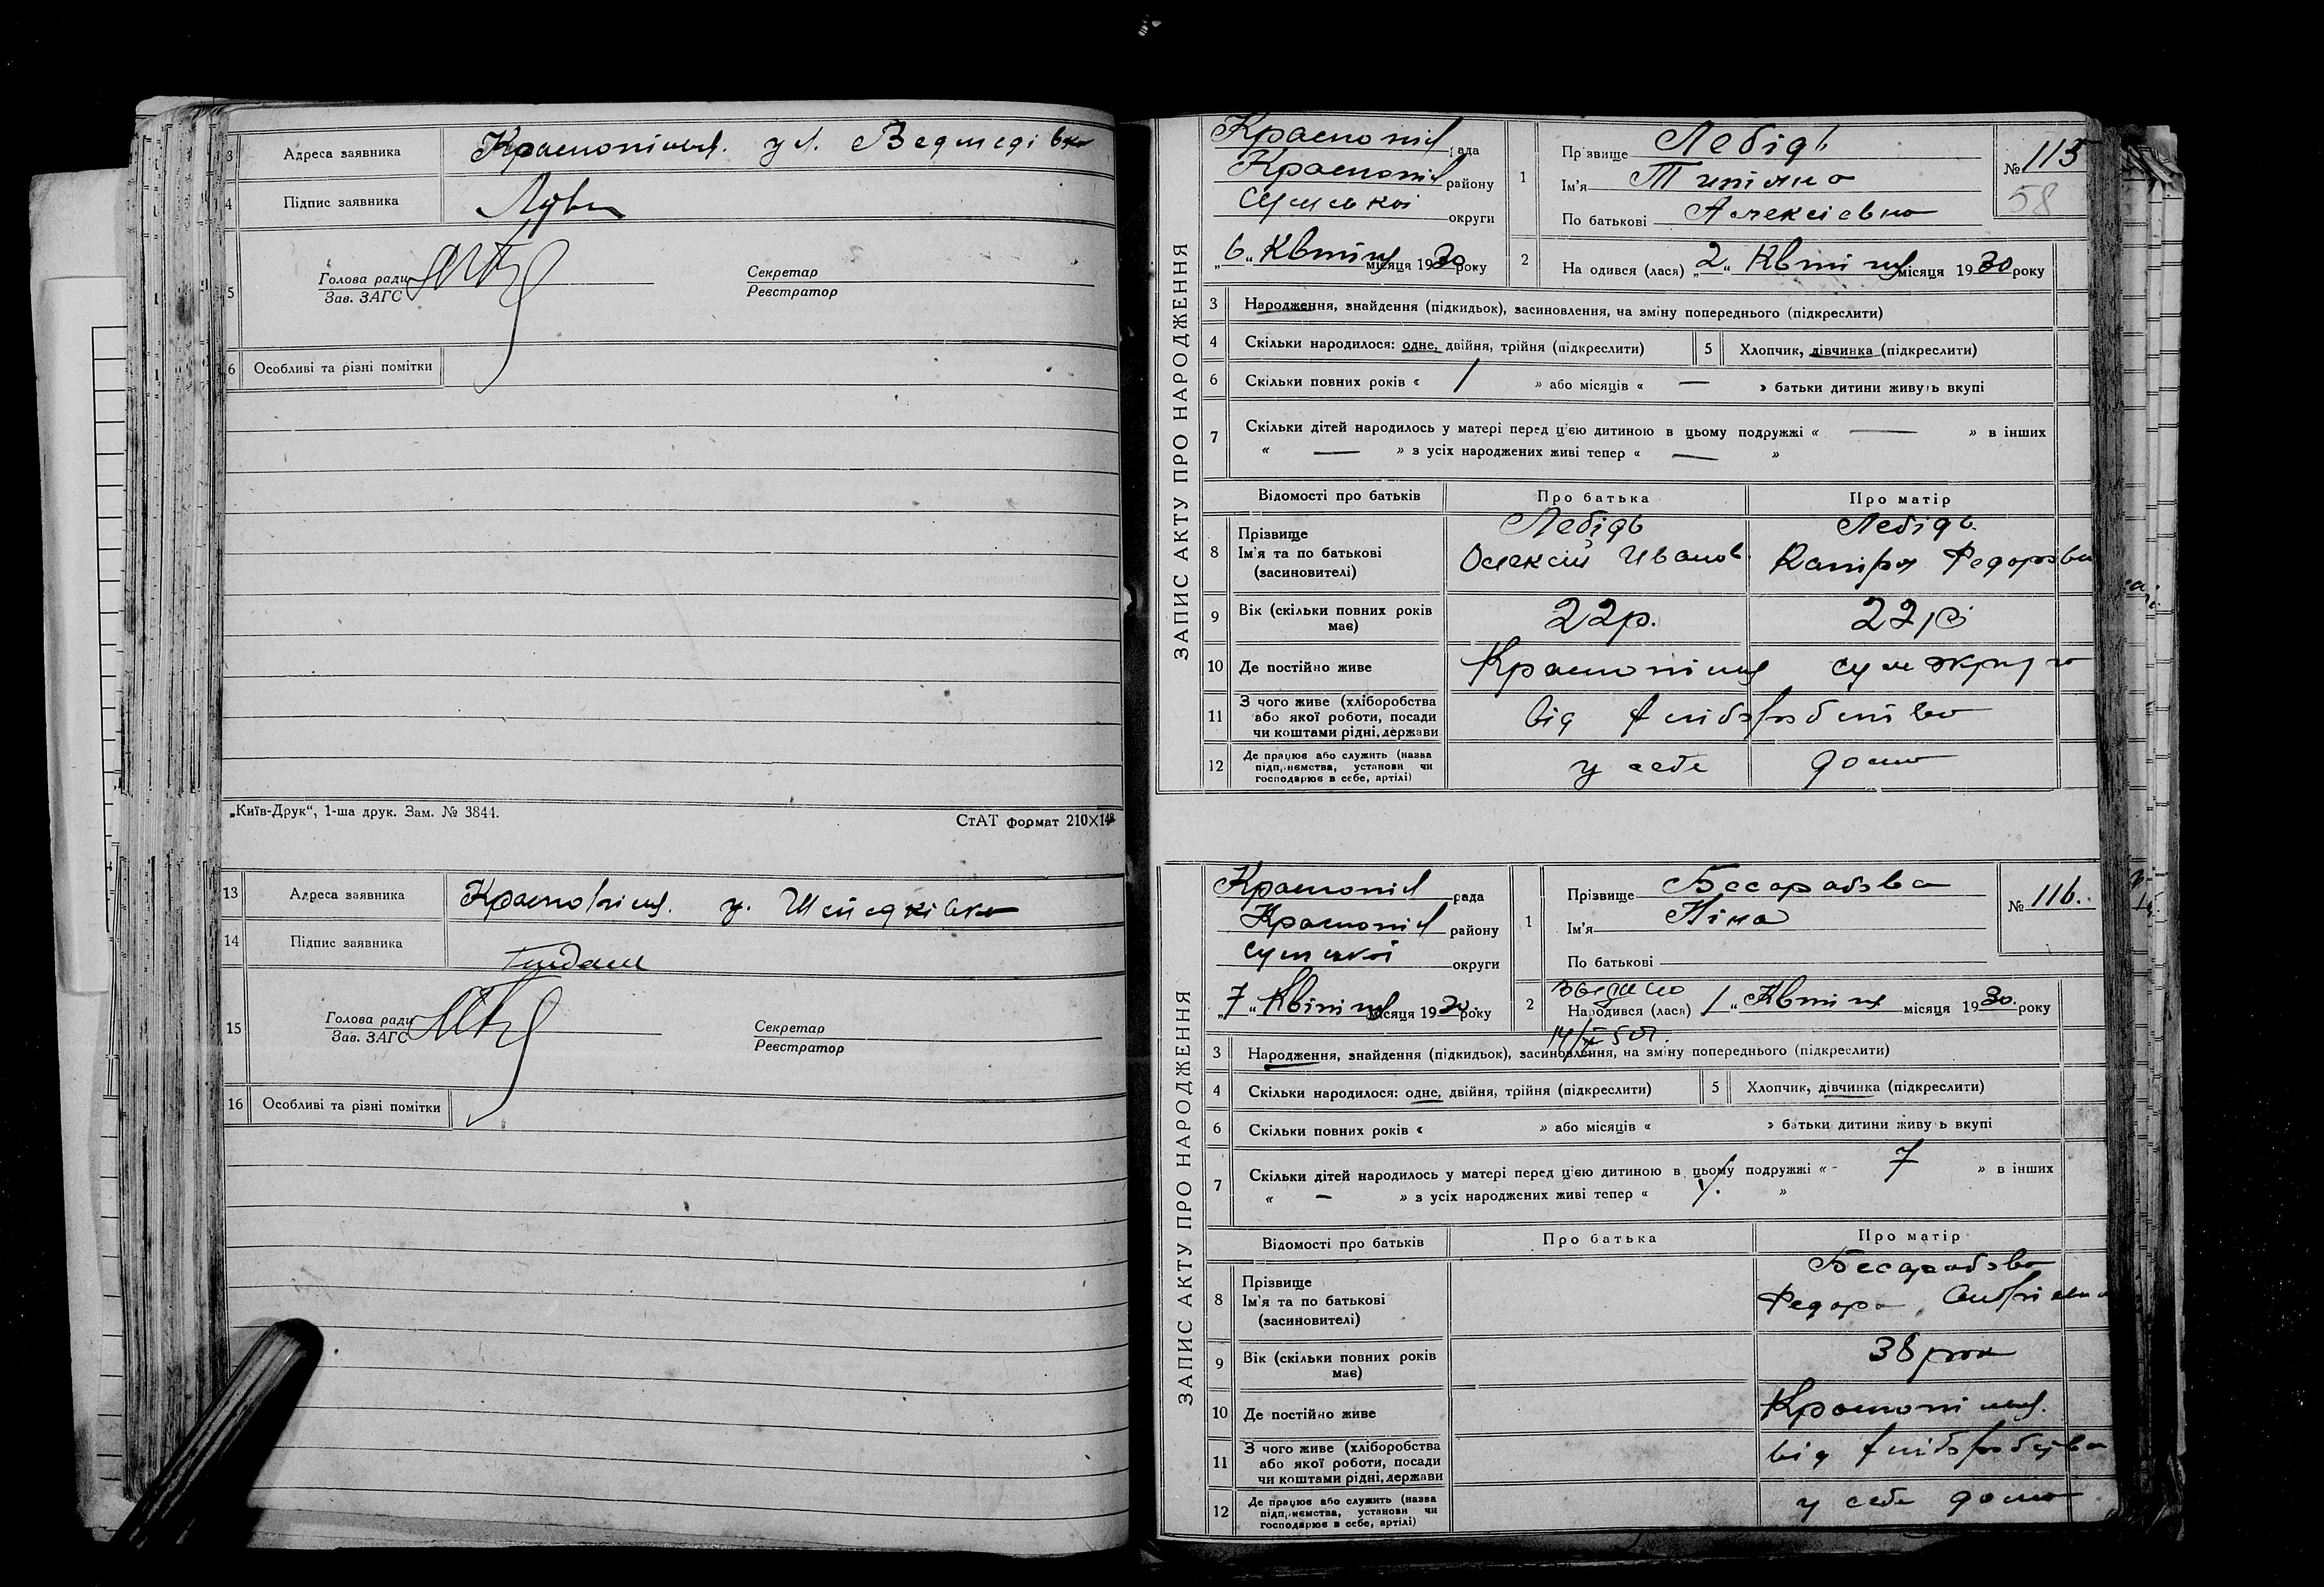 Адреса заявника Краснопілля. ул.
Підпис заявника
5 Голова ради Секретар
Зав. ЗАГС Реєстратор
6 Особливі та різні помітки
„Київ-Друк“, 1-ша друк. Зам. № 3844. СтАТ формат 210×148
13 Адреса заявника Краснопілля. у.
14 Підпис заявника
15 Голова ради Секретар
Зав. ЗАГС Реєстратор
16 Особливі та різні помітки
ЗАПИС АКТУ ПРО НАРОДЖЕННЯ
Краснопіл рада
Краснопіл району
Сумської округи
„6“ Квітня місяця 1930 року
1 Прізвище Лебідь
Ім’я Титяна
По батькові Алексієвна
№ 115
58
2 На одився (лася) „2“ Квітня місяця 1930 року
3 Народження, знайдення (підкидьок), засиновлення, на зміну попереднього (підкреслити)
4 Скільки народилося: одне, двійня, трійня (підкреслити) 5 Хлопчик, дівчинка (підкреслити)
6 Скільки повних років « 1 » або місяців « — » батьки дитини живуть вкупі
7 Скільки дітей народилось у матері перед цією дитиною в цьому подружжі « — » в інших
« — » з усіх народжених живі тепер « — »
Відомості про батьків Про батька Про матір
8 Прізвище Лебідь Лебідь
Ім’я та по батькові Олексій Иванов.
(засиновителі)
9 Вік (скільки повних років має) 22р. 22р
10 Де постійно живе Краснопілля
11 З чого живе (хліборобства
або якої роботи, посади від хліборобства
чи коштами рідні, держави
12 Де працює або служить (назва
підприємства, установи чи у себе дома
господарює в себе, артілі)
ЗАПИС АКТУ ПРО НАРОДЖЕННЯ
Краснопіл рада
Краснопіл району
Сумської округи
„7“ Квітня місяця 1930 року
1 Прізвище Бесарабова
Ім’я Ніна
По батькові
№ 116.
2 Народився (лася) 1 “ Квітня місяця 1930. року
3 Народження, знайдення (підкидьок), засиновлення, на зміну попереднього (підкреслити)
4 Скільки народилося: одне, двійня, трійня (підкреслити) 5 Хлопчик, дівчинка (підкреслити)
6 Скільки повних років « » або місяців « » батьки дитини живуть вкупі
7 Скільки дітей народилось у матері перед цією дитиною в цьому подружжі « - 7 » в інших
« — » з усіх народжених живі тепер « »
Відомості про батьків Про батька Про матір
8 Прізвище Бесарабова
Ім’я та по батькові Федора
(засиновителі)
9 Вік (скільки повних років має) 38 рок
10 Де постійно живе Краснопілля.
11 З чого живе (хліборобства
або якої роботи, посади від хліборобства
чи коштами рідні, держави
12 Де працює або служить (назва
підприємства, установи чи у себе дома
господарює в себе, артілі)